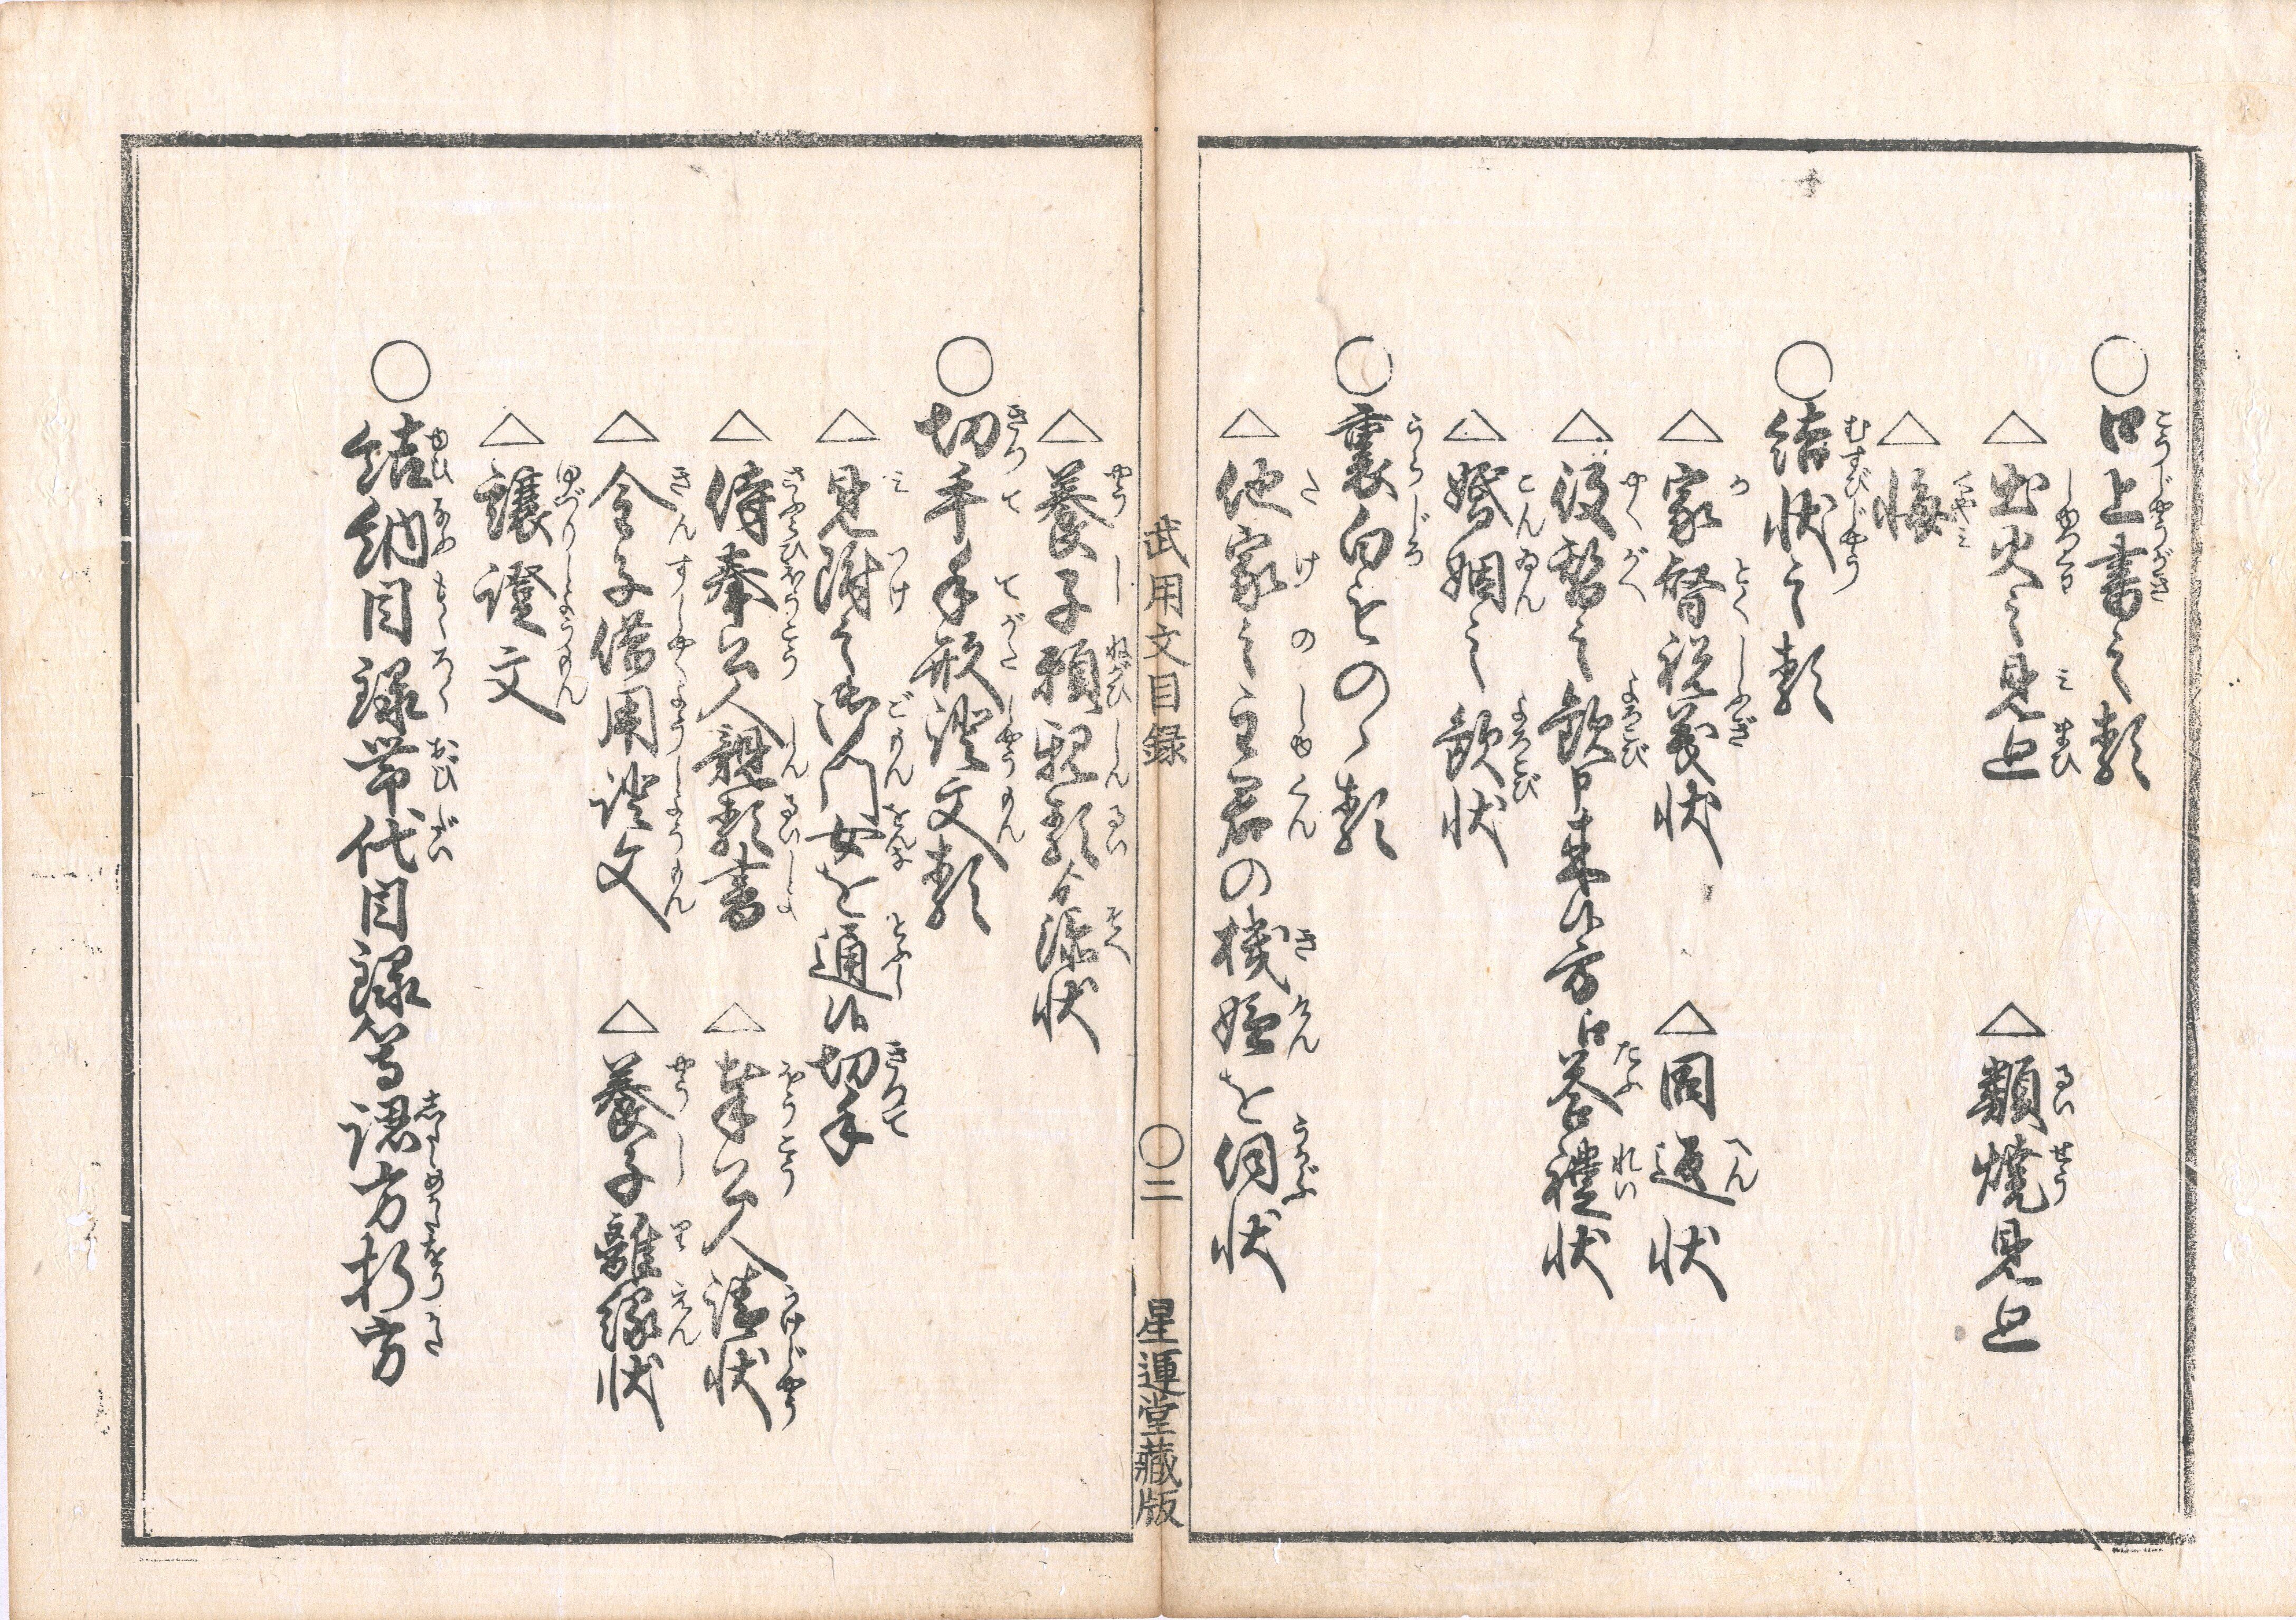 ○口上書之類
△出火之見廻
△類焼見廻
△悔
○結状之類
△家督祝義状
△同返状
△役替之歓申来候方江答禮状
△婚姻之歓状
○裏白ものゝ類
△他家之主君の機嫌を伺状
武用文目録
○二
星運堂藏版
△養子願親類ゟ添状
○切手手形證文類
△見附之御門女を通候切手
△侍奉公人親類書
△奉公人請状
△金子借用證文
△養子離縁状
△譲證文
○結納目録帯代目録等認方折方